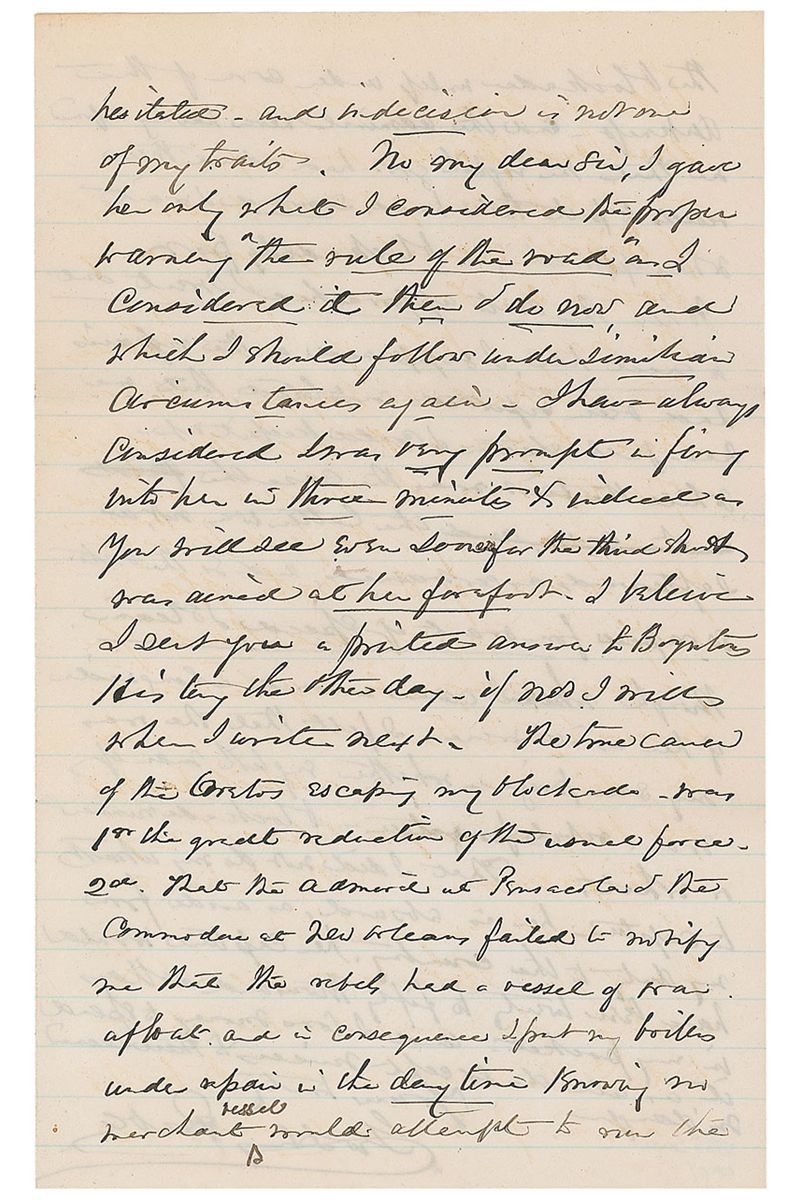 hesitated - and indecision is not one
of my traits. No my dear Sir, I gave
her only what I considered the proper
warning "the rule of the road" as I
considered it then & do now, and
which I should follow under similiar
circumstances again - I have always
considered I was very prompt in firing
into her in three minutes & indeed as
you will see even sooner for the third shot
was aimed at her forefoot. I believe
I sent you a printed answer to Boyntons
History the other day - if not I will
when I write next. The true cause
of the Oretos escaping my blockade - was
1st the great reduction of the usual force -
2d. that the Admiral at Pensacola & the
Commodore at New Orleans failed to notify
me that the rebels had a vessel of war
afloat. and in consequence I put my boilers
under repair in the day time knowing no
vessel
merchant would attempt to run the